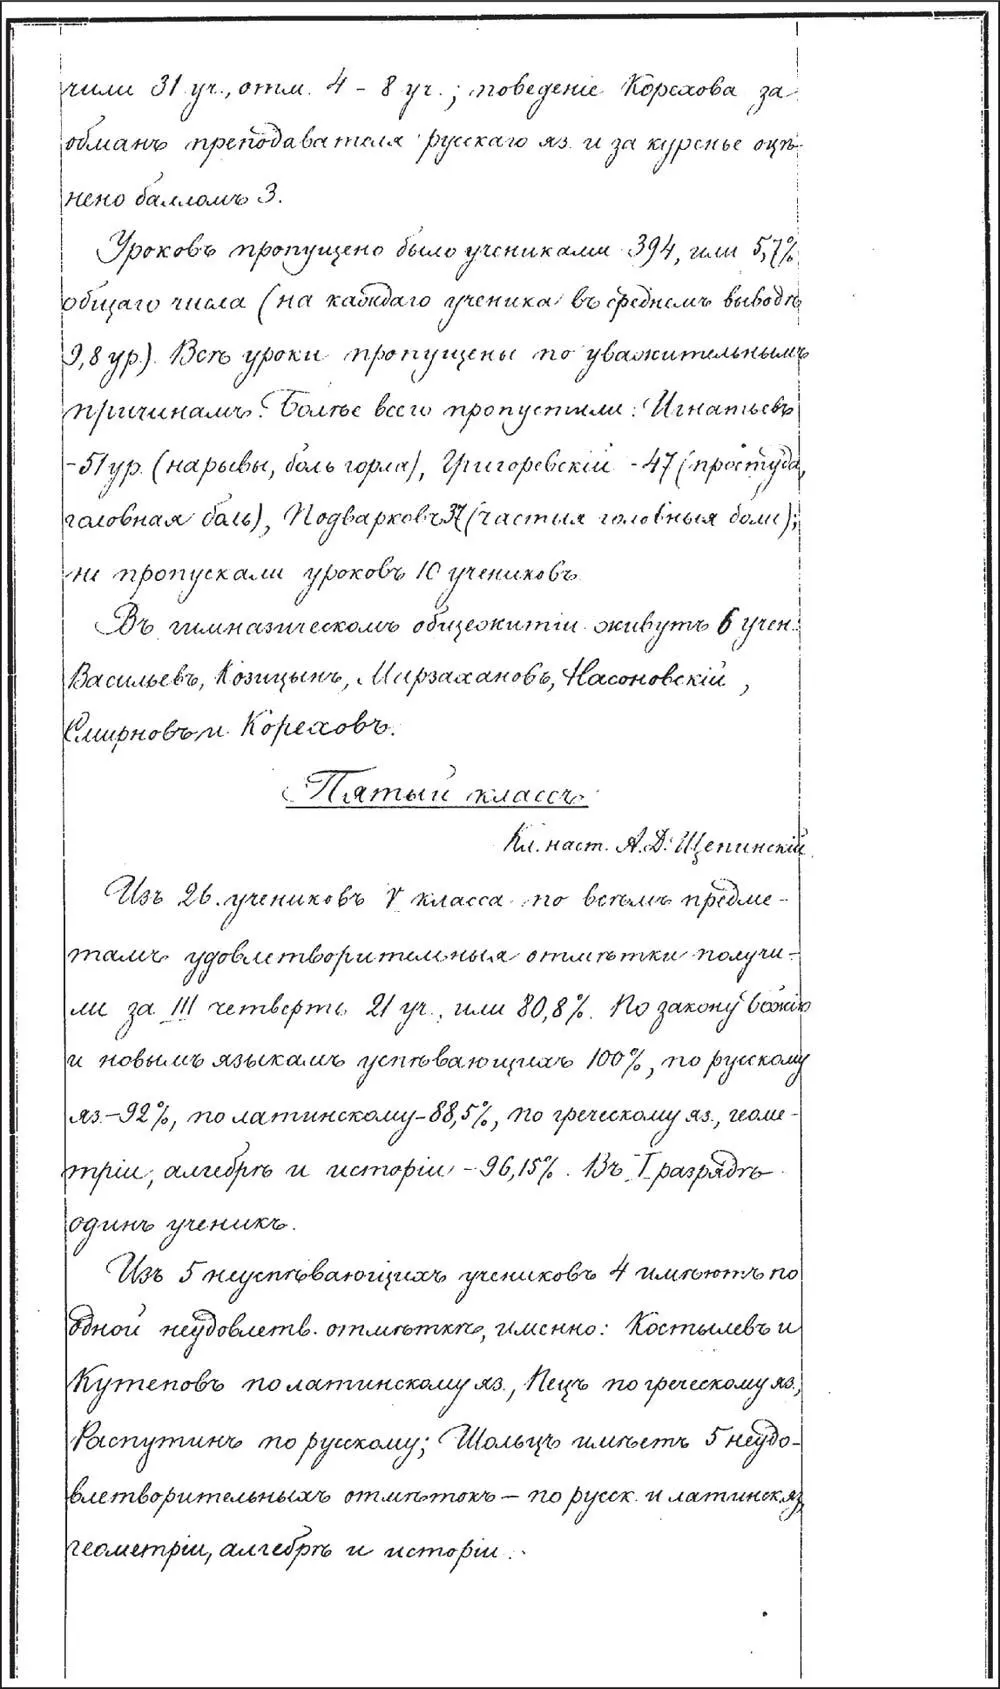 чили 31 уч., отм. 4 – 8 уч.; поведеніе Корехова за
обманъ преподавателя русскаго яз. и за куренье оцѣ-
нено балломъ 3.
Уроковъ пропущено было учениками 394, или 5,7%
общаго числа (на каждаго ученика въ среднемъ выводѣ
9,8 ур.). Всѣ уроки пропущены по уважительнымъ
причинамъ. Болѣе всего пропустили: Игнатьевъ
– 51 ур. (нарывы, боль горла), Григоревскій – 47 (простуда,
головная боль), Подварковъ 37 (частыя головныя боли);
не пропускали уроковъ 10 учениковъ.
Въ гимназическомъ общежитіи живутъ 6 учен.:
Васильевъ, Козицынъ, Мирзахановъ, Насоновскій,
Смирновъ и Кореховъ.
Пятый классъ
Кл. наст. А. Д. Щепинскій.
Изъ 26 учениковъ V класса по всѣмъ предме-
тамъ удовлетворительныя отмѣтки получи-
ли за III четверть 21 уч., или 80,8%. По закону Божію
и новымъ языкамъ успѣвающихъ 100%, по русскому
яз. – 92%, по латинскому – 88,5%, по греческому яз., геоме-
тріи, алгебрѣ и исторіи – 96,15%. Въ I разрядѣ
одинъ ученикъ.
Изъ 5 неуспѣвающихъ учениковъ 4 имѣютъ по
одной неудовлетв. отмѣткѣ, именно: Костылевъ и
Кутеповъ по латинскому яз., Пецъ по греческому яз.,
Распутинъ по русскому; Шольцъ имѣетъ 5 неудо-
влетворительныхъ отмѣтокъ – по русск. и латинск. яз.,
геометріи, алгебрѣ и исторіи.